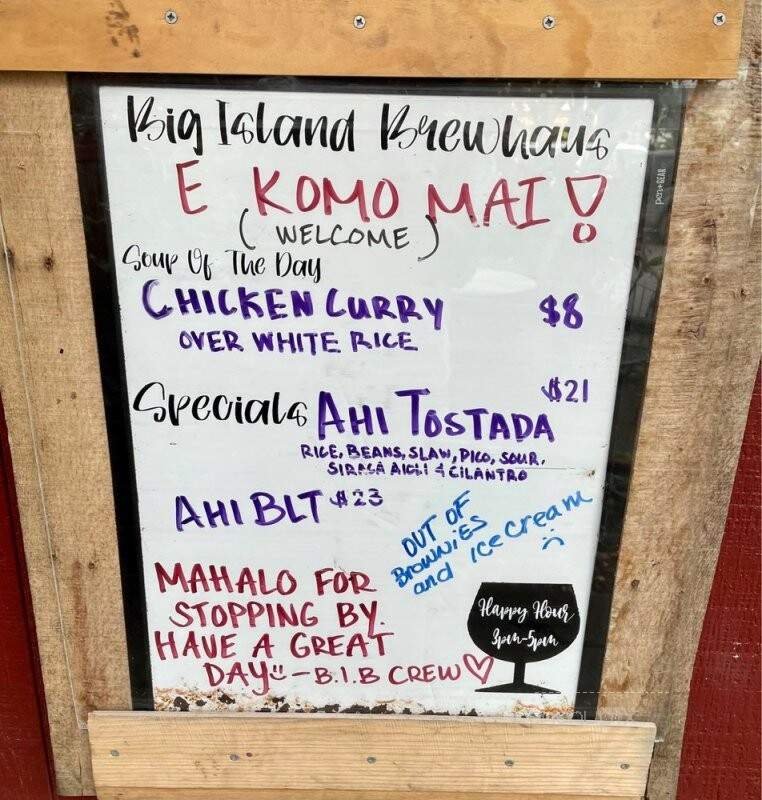 Big Island Brewhaus
E KOMO MAI!
(WELCOME)
Soup Of The Day
CHICKEN CURRY $8
OVER WHITE RICE
Specials AHI TOSTADA $21
RICE, BEANS, SLAW, PICO, SOUR,
SIRACA AIOLI & CILANTRO
AHI BLT $23
OUT OF
BROWNIES
and ice cream
MAHALO FOR
STOPPING BY.
HAVE A GREAT
DAY - B.I.B CREW
Happy Hour
3pm-5pm
pen+GEAR